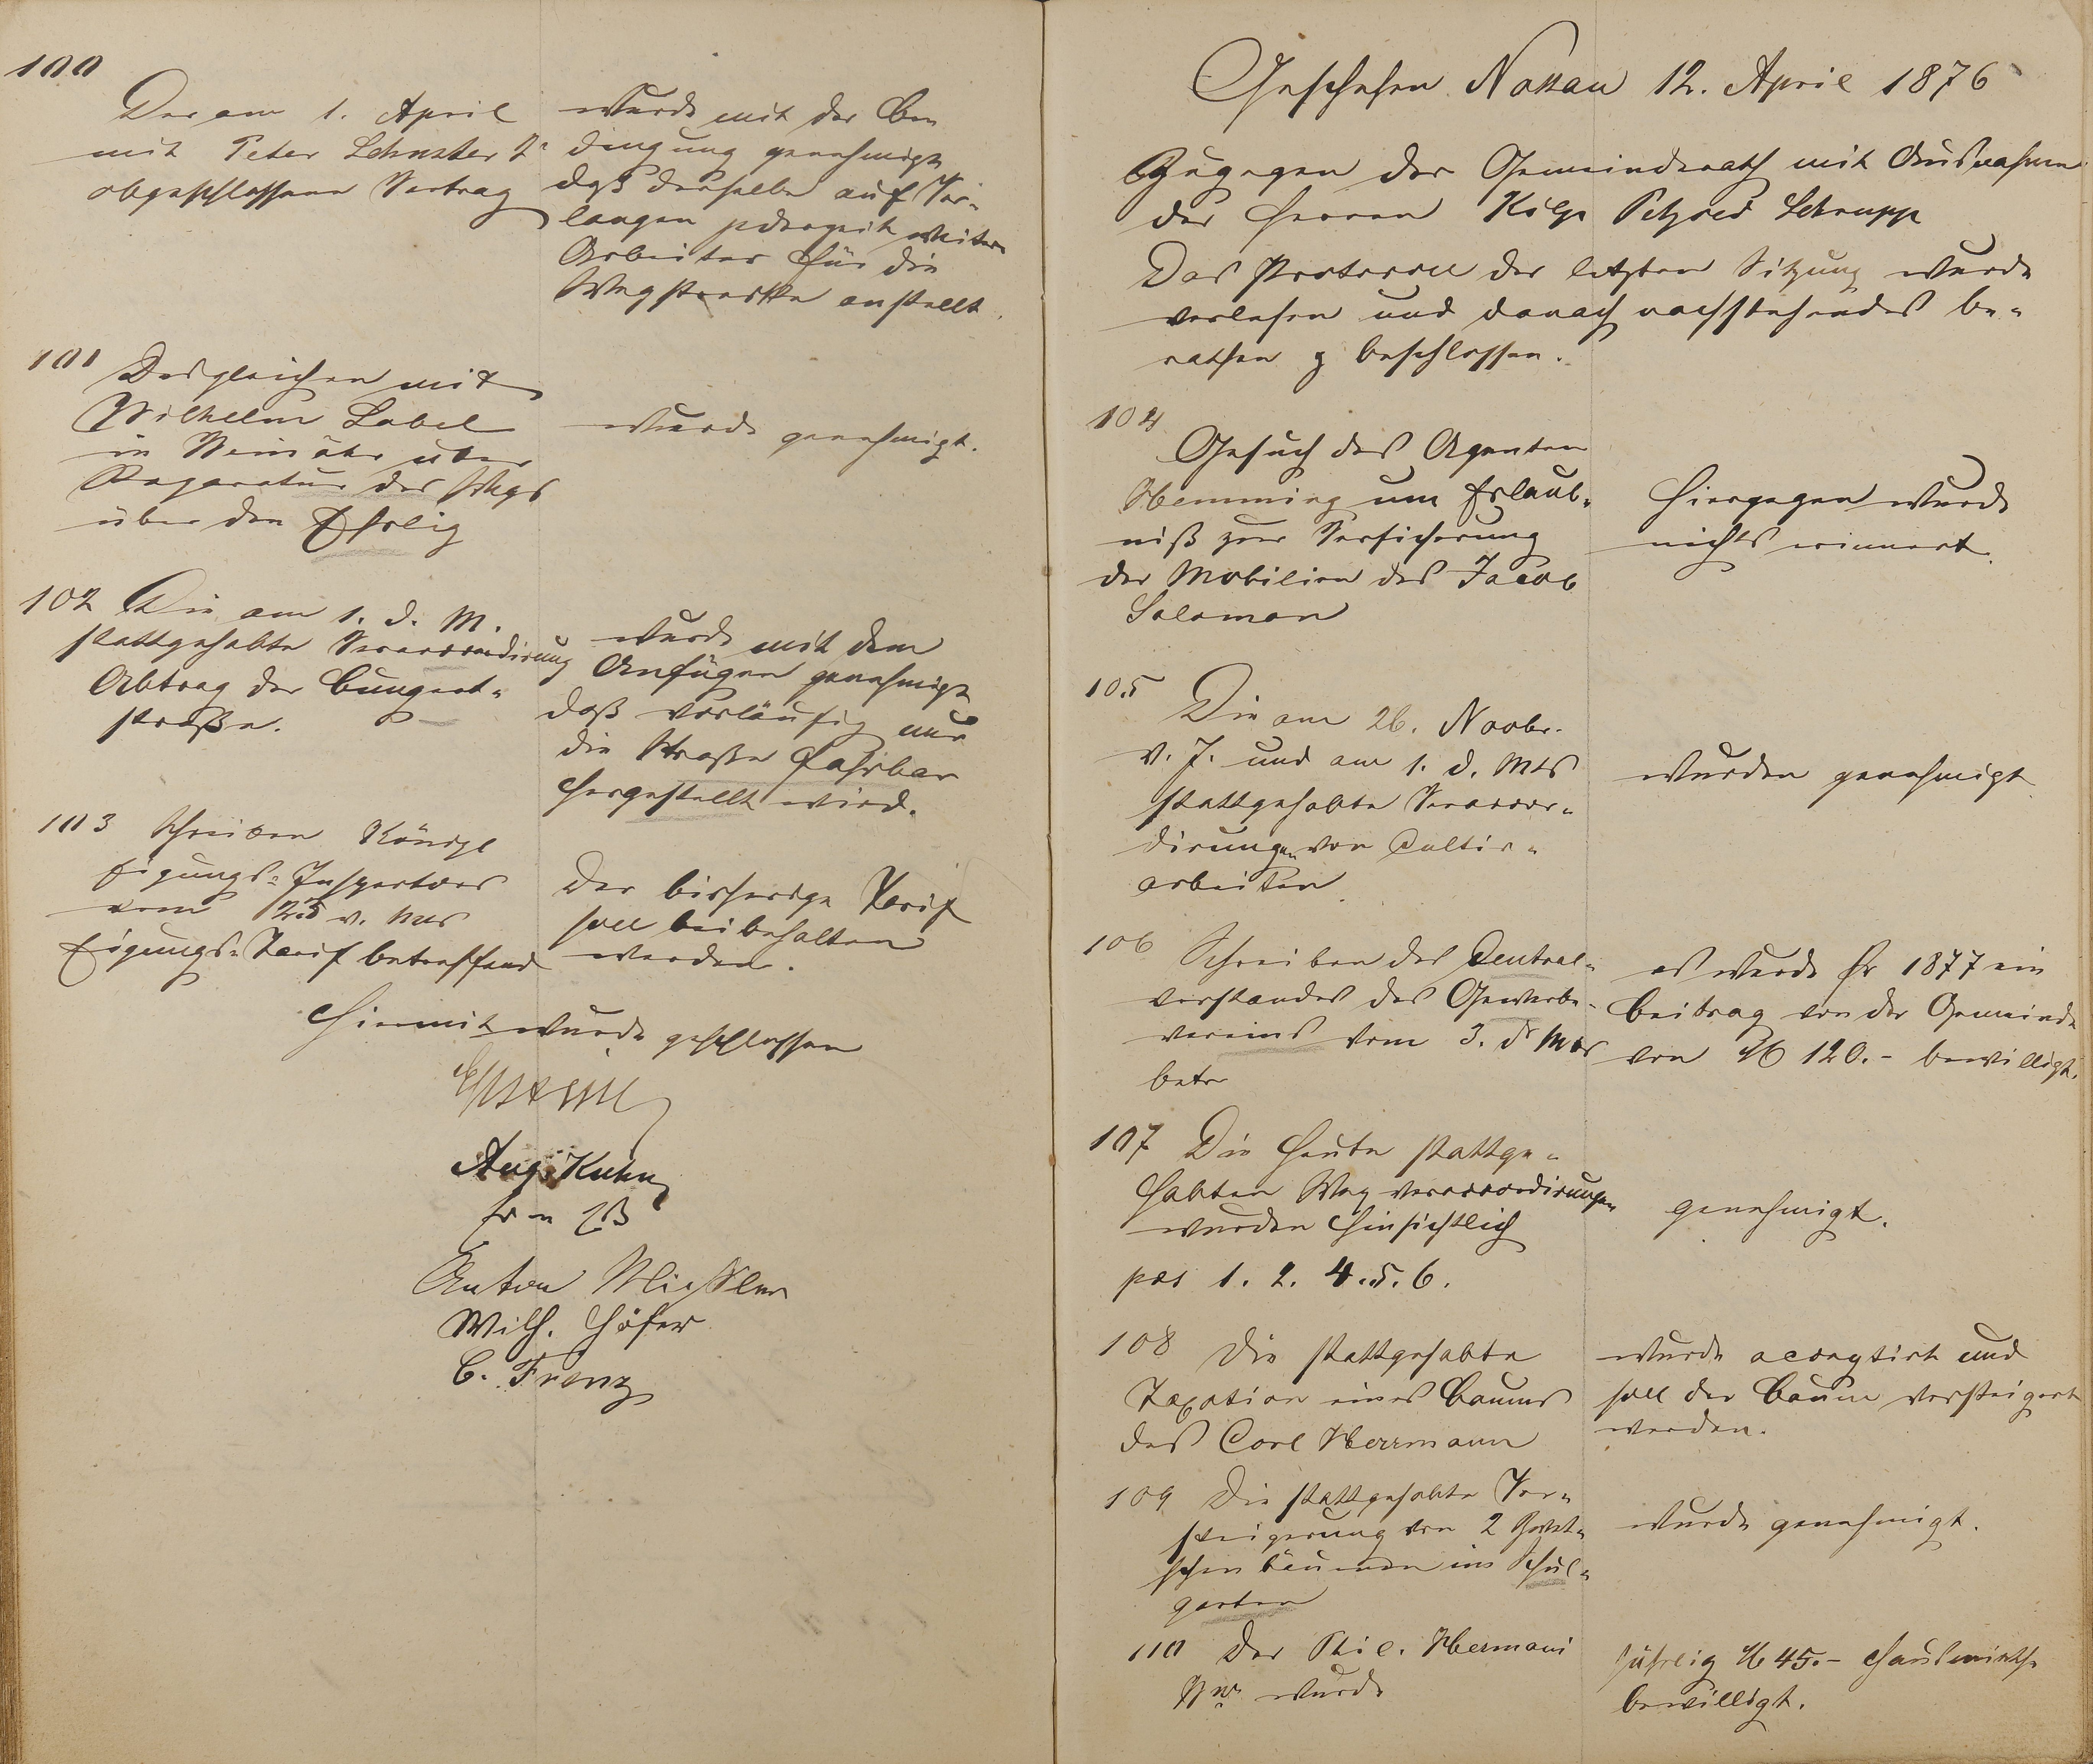 100
Der am 1. April
mit Peter Schuster 2r
abgeschlossene Vertrag
wurde mit der Be
dingung genehmigt
daß derselbe auf Ver-
langen jederzeit weitere
Arbeiter für die
Wegstrecke anstellt.
101 Desgleichen mit
Wilhelm Label
in Weinähr über
Reparatur des Wegs
über den
wurde genehmigt.
102 Die am 1. d. M.
stattgehabte Veraccordirung
Abtrag der Bungert-
straße.
wurde mit dem
Anfügen genehmigt
daß vorläufig nur
die Straße fahrbar
hergestellt wird.
103 Schreiben Königl
Eichungs-Inspectors
vom 25 v. Mts
Eichungs-Tarif betreffend
Der bisherige Tarif
soll beibehalten
werden.
Hiermit wurde geschlossen
Aug. Kuhn
Anton Mißler
Wilh. Höfer
C. Frenz
Geschehen Nassau 12. April 1876
Zugegen der Gemeinderath mit Ausnahme
der Herren Kilp Schrupp
Das Protocoll der letzten Sitzung wurde
verlesen und danach nachstehendes be-
rathen & beschlossen.
104
Gesuch des Agenten
Hemming um Erlaub-
niß zur Versicherung
der Mobilien des Jacob
Salomon
Hiergegen wurde
nichts erinnert.
105
Die am 26. Novbr.
v. J. und am 1. d. Mts
stattgehabte Veraccor-
dirungen von Cultur-
arbeiten
wurden genehmigt
106 Schreiben des Central-
vorstandes des Gewerbe-
vereins vom 3. d Mts
betr
es wurde für 1877 ein
Beitrag von der Gemeinde
von M 120.- bewilligt.
107 Die heute stattge-
habten Weg veraccordirungen
wurden hinsichtlich
pos 1. 2. 4. 5. 6.
genehmigt.
108 Die stattgehabte
Taxation eines Baumes
des Carl Herrmann
wurde acceptirt und
soll der Baum versteigert
werden.
109 Die stattgehabte Ver-
steigerung von 2 Zwet-
schenbäumen im Schul-
garten
wurde genehmigt.
110 Der Phil. Hermani
Ww. wurde
jährlich M 45.- Hausmiethe
bewilligt.